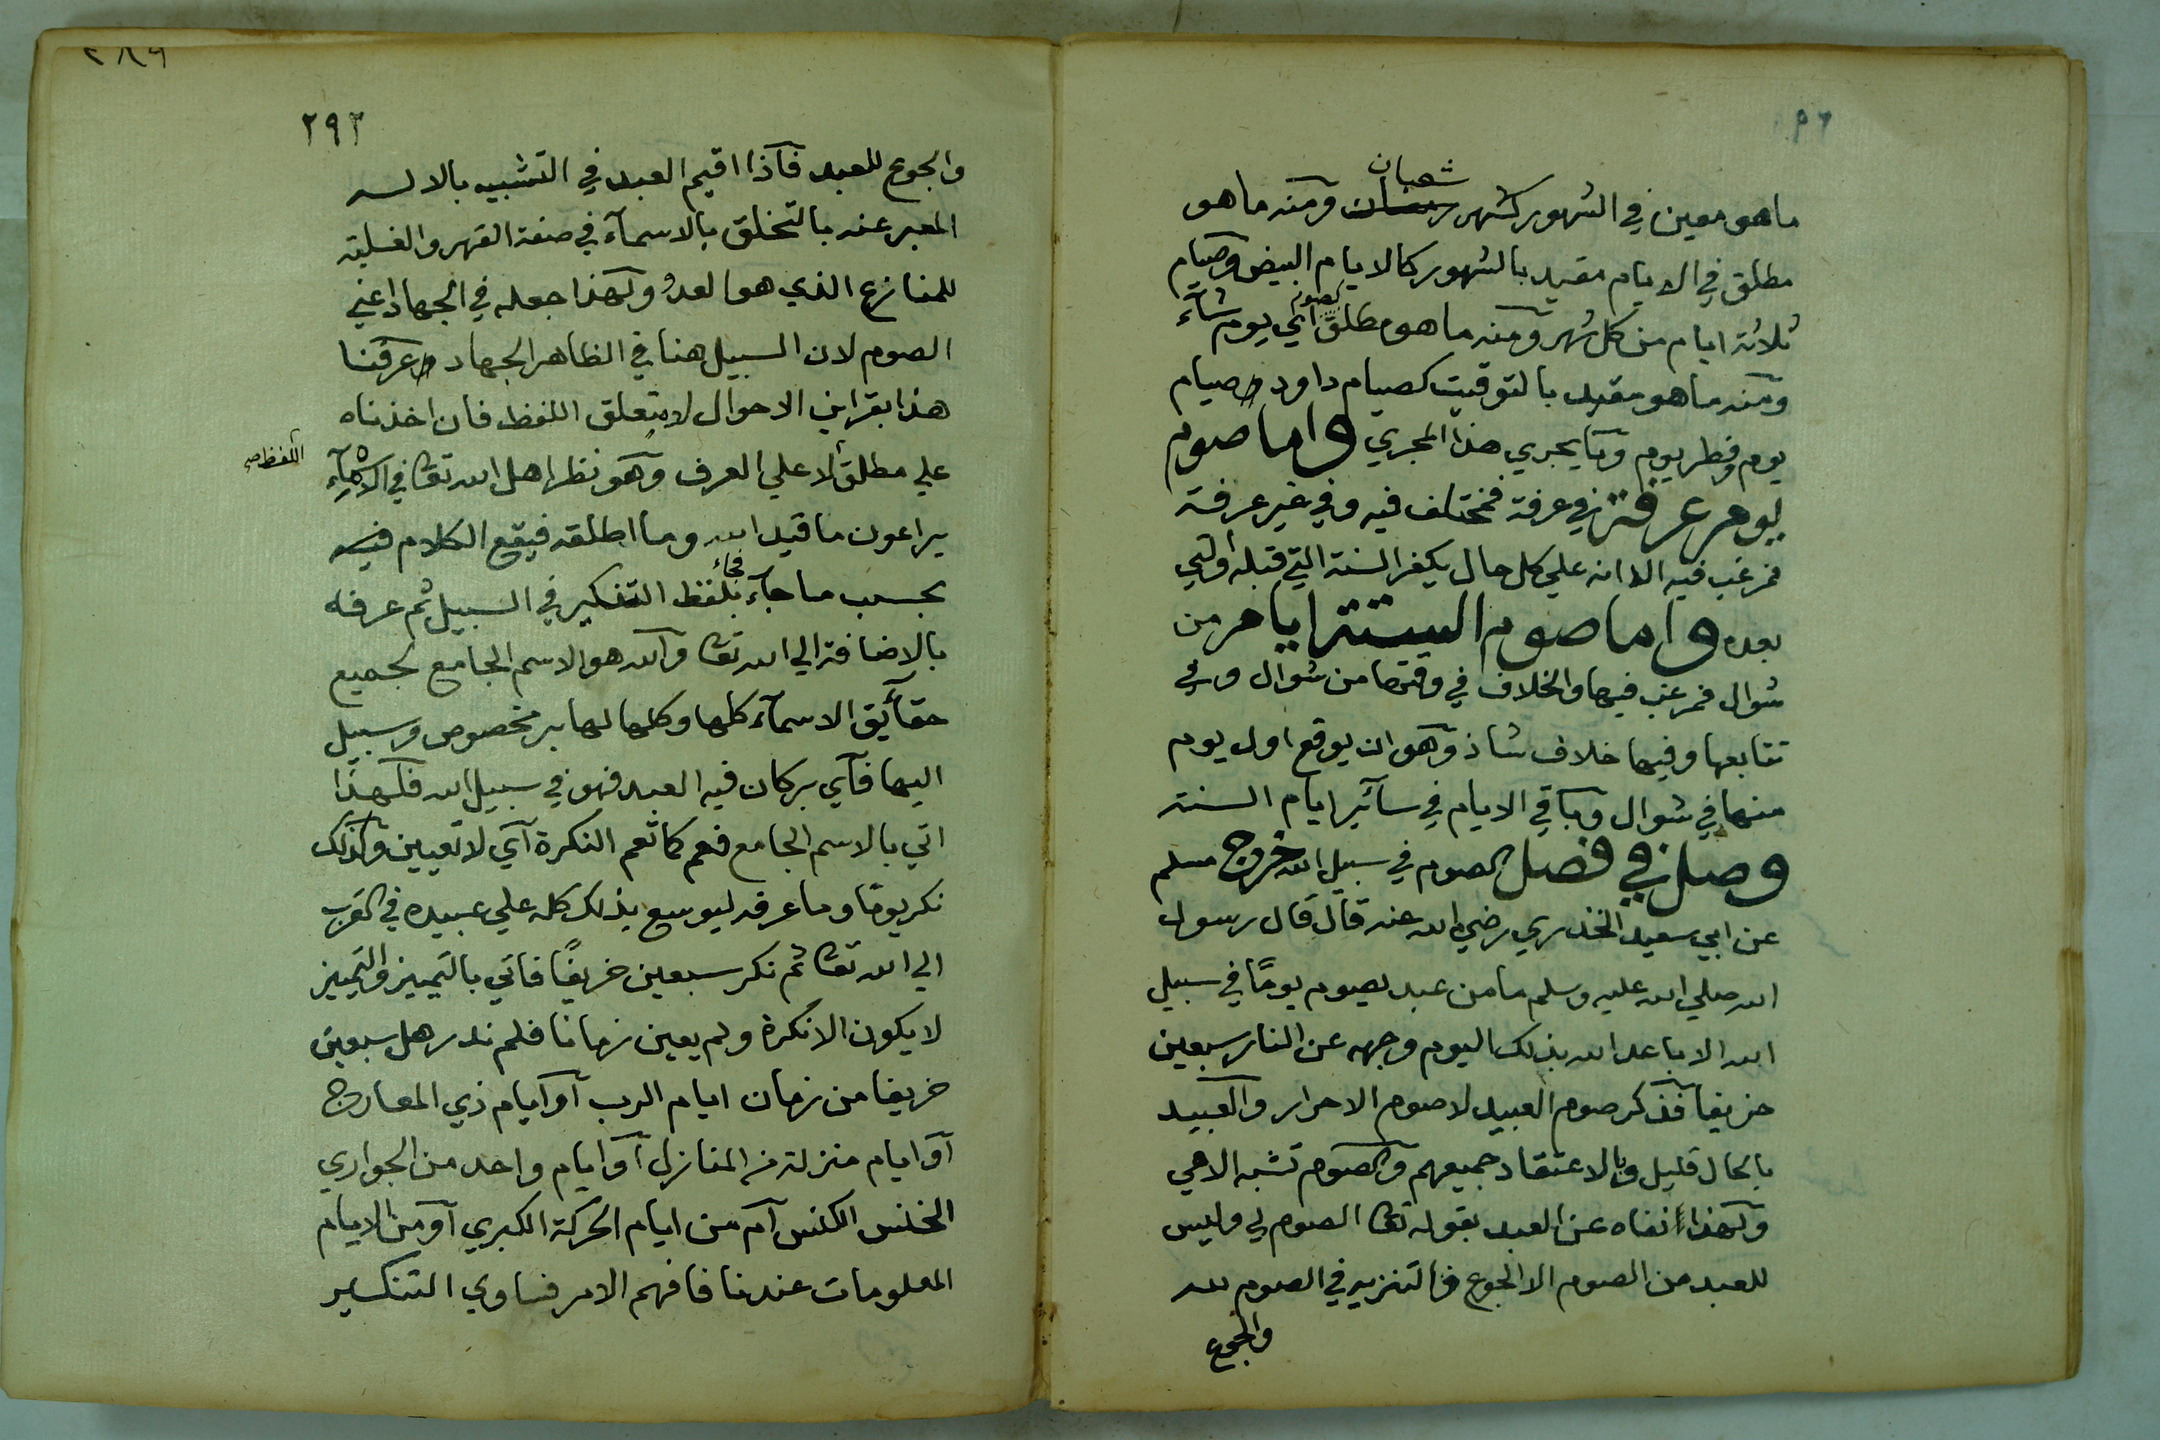 شعبان
ما هو معين في الشهور كشهر رمضان ومنه ما هو
مطلق في الايام مقيد بالشهور كالايام البيض وصيام
ثلاثة ايام من كل شهر ومنه ما هو مطلق كصوم اي يوم شآء
ومنه ما هو مقيد بالتوقيت كصيام داود وصيام
يوم وفطر يوم وما يجري هذا المجري واما صوم
يوم عرفة في عرفة فمختلف فيه وفي غير عرفة
فمرغب فيه الا انه علي كل حال يكفر السنة التي قبله او التي
بعده واما صوم الستة ايام من
شوال فمرغب فيها والخلاف في وقتها من شوال وفي
تتابعها وفيها خلاف شاذ وهو ان يوقع اول يوم
منها في شوال وباقي الايام في سآئير ايام السنة
وصل في فصل الصوم في سبيل الله خرج مسلم
عن ابي سعيد الخدري رضي الله عنه قال قال رسول
الله صلي الله عليه وسلم ما من عبد يصوم يومًا في سبيل
الله الا باعد الله بذلك اليوم وجهه عن النار سبعين
خريفا فذكر صوم العبيد لا صوم الاحرار والعبيد
بالحال قليل وبالاعتقاد جميعهم والصوم تشبه الاهي
ولهذا نفاه عن العبد بقوله تعا الصوم لي وليس
للعبد من الصوم الا الجوع فالتنزيه في الصوم لله
والجوع
٢٩٣
والجوع للعبد فآذا اقيم العبد في التشبيه بالاله
المعبر عنه بالتخلق بالاسمآء في صفة القهر والغلبة
للمنازع الذي هو العدو ولهذا جعله في الجهاد اعني
الصوم لان السبيل هنا في الظاهر الجهاد وعرفنا
هذا بقراين الاحوال لا بتعلق اللفظ فان اخذناه
علي مطلق لا علي العرف وهو نظر اهل الله تعا في الاسمآء
اللفظ صح
يراعون ما قيد الله وما اطلقه فيقع الكلام فيه
بحسب ما جآء فجاء بلفظ التنكير في السبيل ثم عرفه
بالاضافة الي الله تعا والله هو الاسم الجامع لجميع
حقآئق الاسمآء كلها وكلها لها بر مخصوص وسبيل
اليها فآي بر كان فيه العبد فهو في سبيل الله فلهذا
اتي بالاسم الجامع فعم كما تعم النكرة آي لا تعيين وكذلك
نكر يومًا وما عرفه ليوسع بذلك كله علي عبيده في القرب
الي الله تعا ثم نكر سبعين خريفًا فاتي بالتمييز والتمييز
لا يكون الا نكرة ولم يعين زمانا فلم ندر هل سبعين
خريفا من زمان ايام الرب آو آيام ذي المعارج
آو ايام منزلة من المنازل آو ايام واحد من الجواري
الخنس الكنس آم من ايام الحركة الكبري آو من الايام
المعلومات عندنا فافهم الامر فساوي التنكير